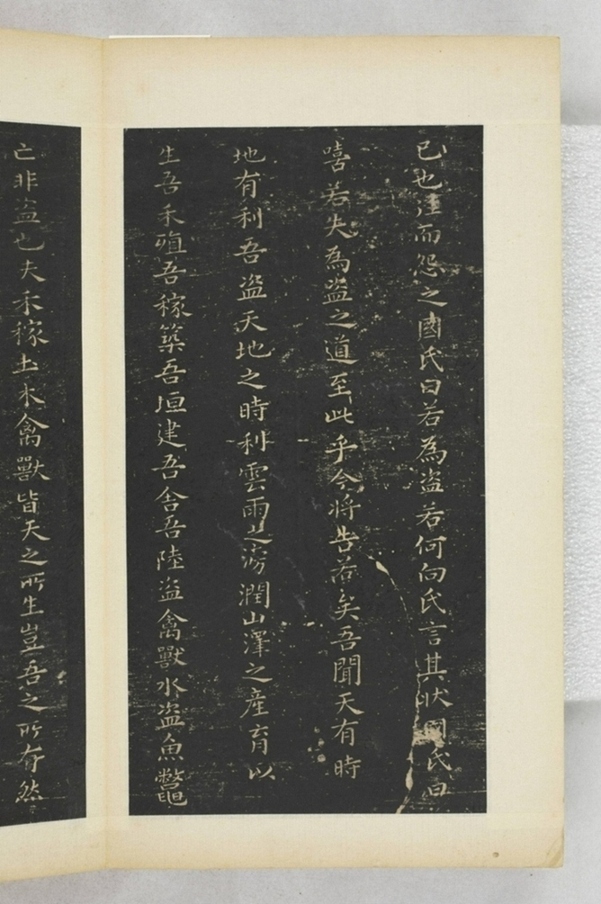 己也往而怨之國氏曰若為盜若何向氏言其狀國氏曰
嘻若失為盜之道至此乎今將告若矣吾聞天有時
地有利吾盜天地之時利雲雨之滂潤山澤之產育以
生吾禾殖吾稼築吾垣建吾舍吾陸盜禽獸水盜魚鼈
亡非盜也夫禾稼土木禽獸皆天之所生豈吾之所有然